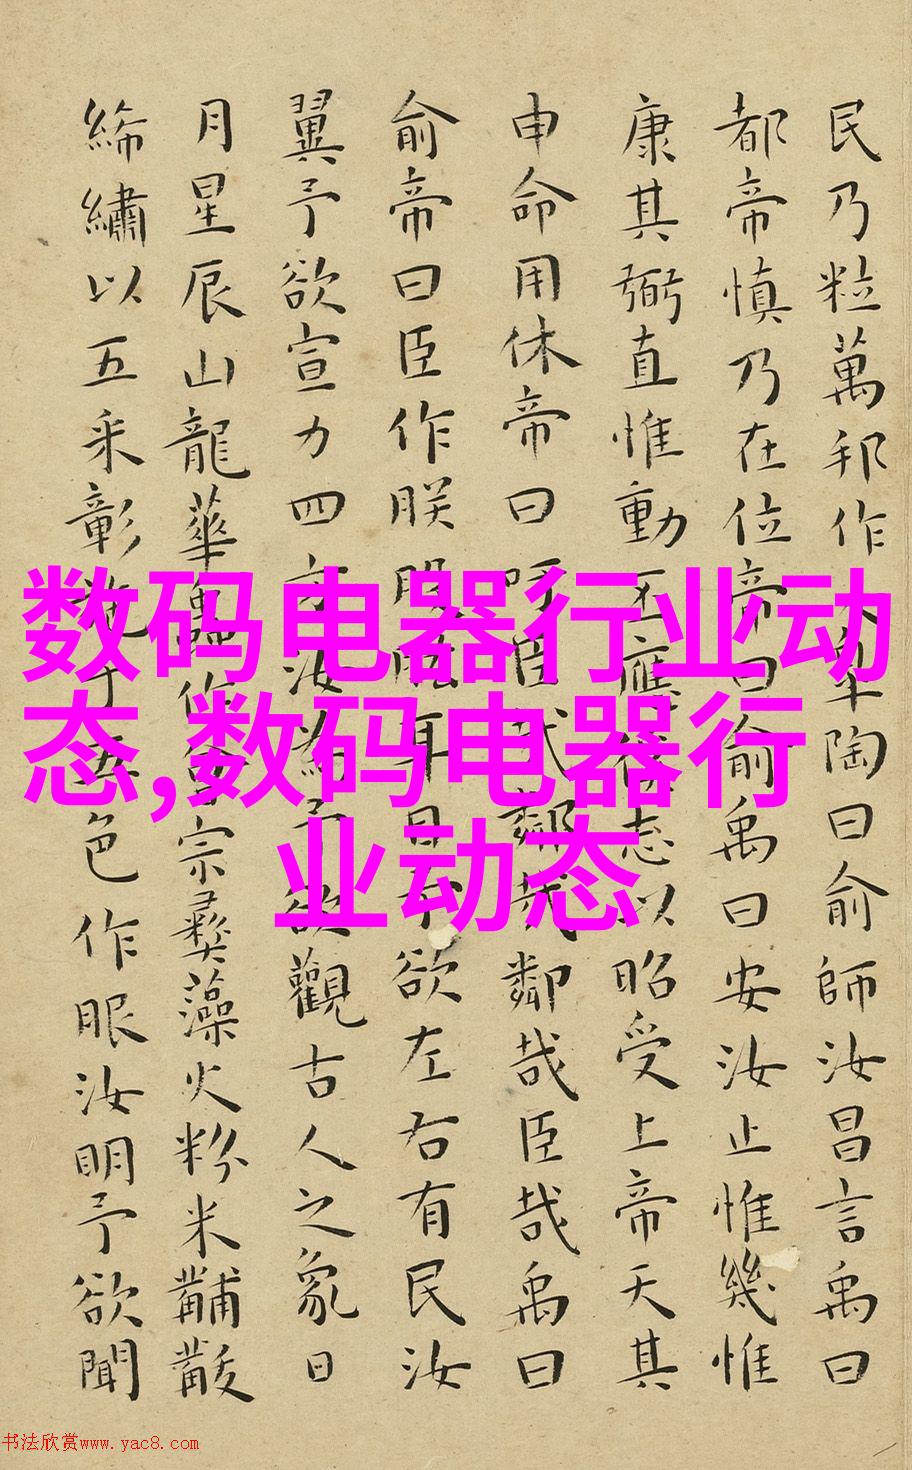 民乃粒萬邦作乂皋陶曰俞師汝昌言禹曰
都帝慎乃在位帝曰俞禹曰安汝止惟幾惟
康其弼直惟動丕應徯志以昭受上帝天其
申命用休帝曰吁臣哉鄰哉鄰哉臣哉禹曰
俞帝曰臣作朕股肱耳目予欲左右有民汝
翼予欲宣力四方汝為予欲觀古人之象日
月星辰山龍華蟲作會宗彝藻火粉米黼黻
絺繡以五采彰施于五色作服汝明予欲聞
数码电器行业动
态,数码电器行
业动态
书法欣赏www.yac8.com